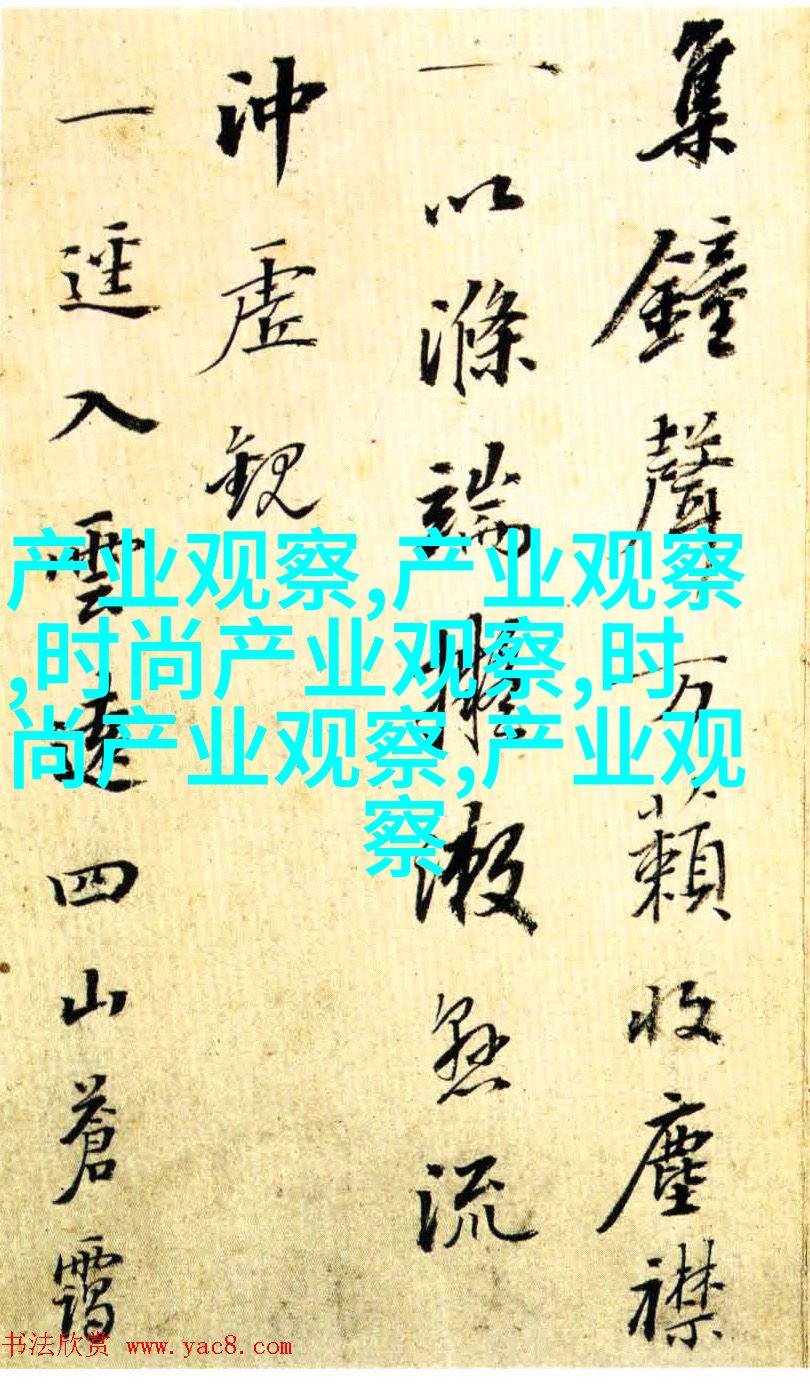 集鐘聲万籟收塵襟
一以滌端擬漱懸流
沖虛觀
一逕入雲遠四山蒼靄
产业观察,产业观察
,时尚产业观察,时
尚产业观察,产业观
察
书法欣赏 www.yac8.com